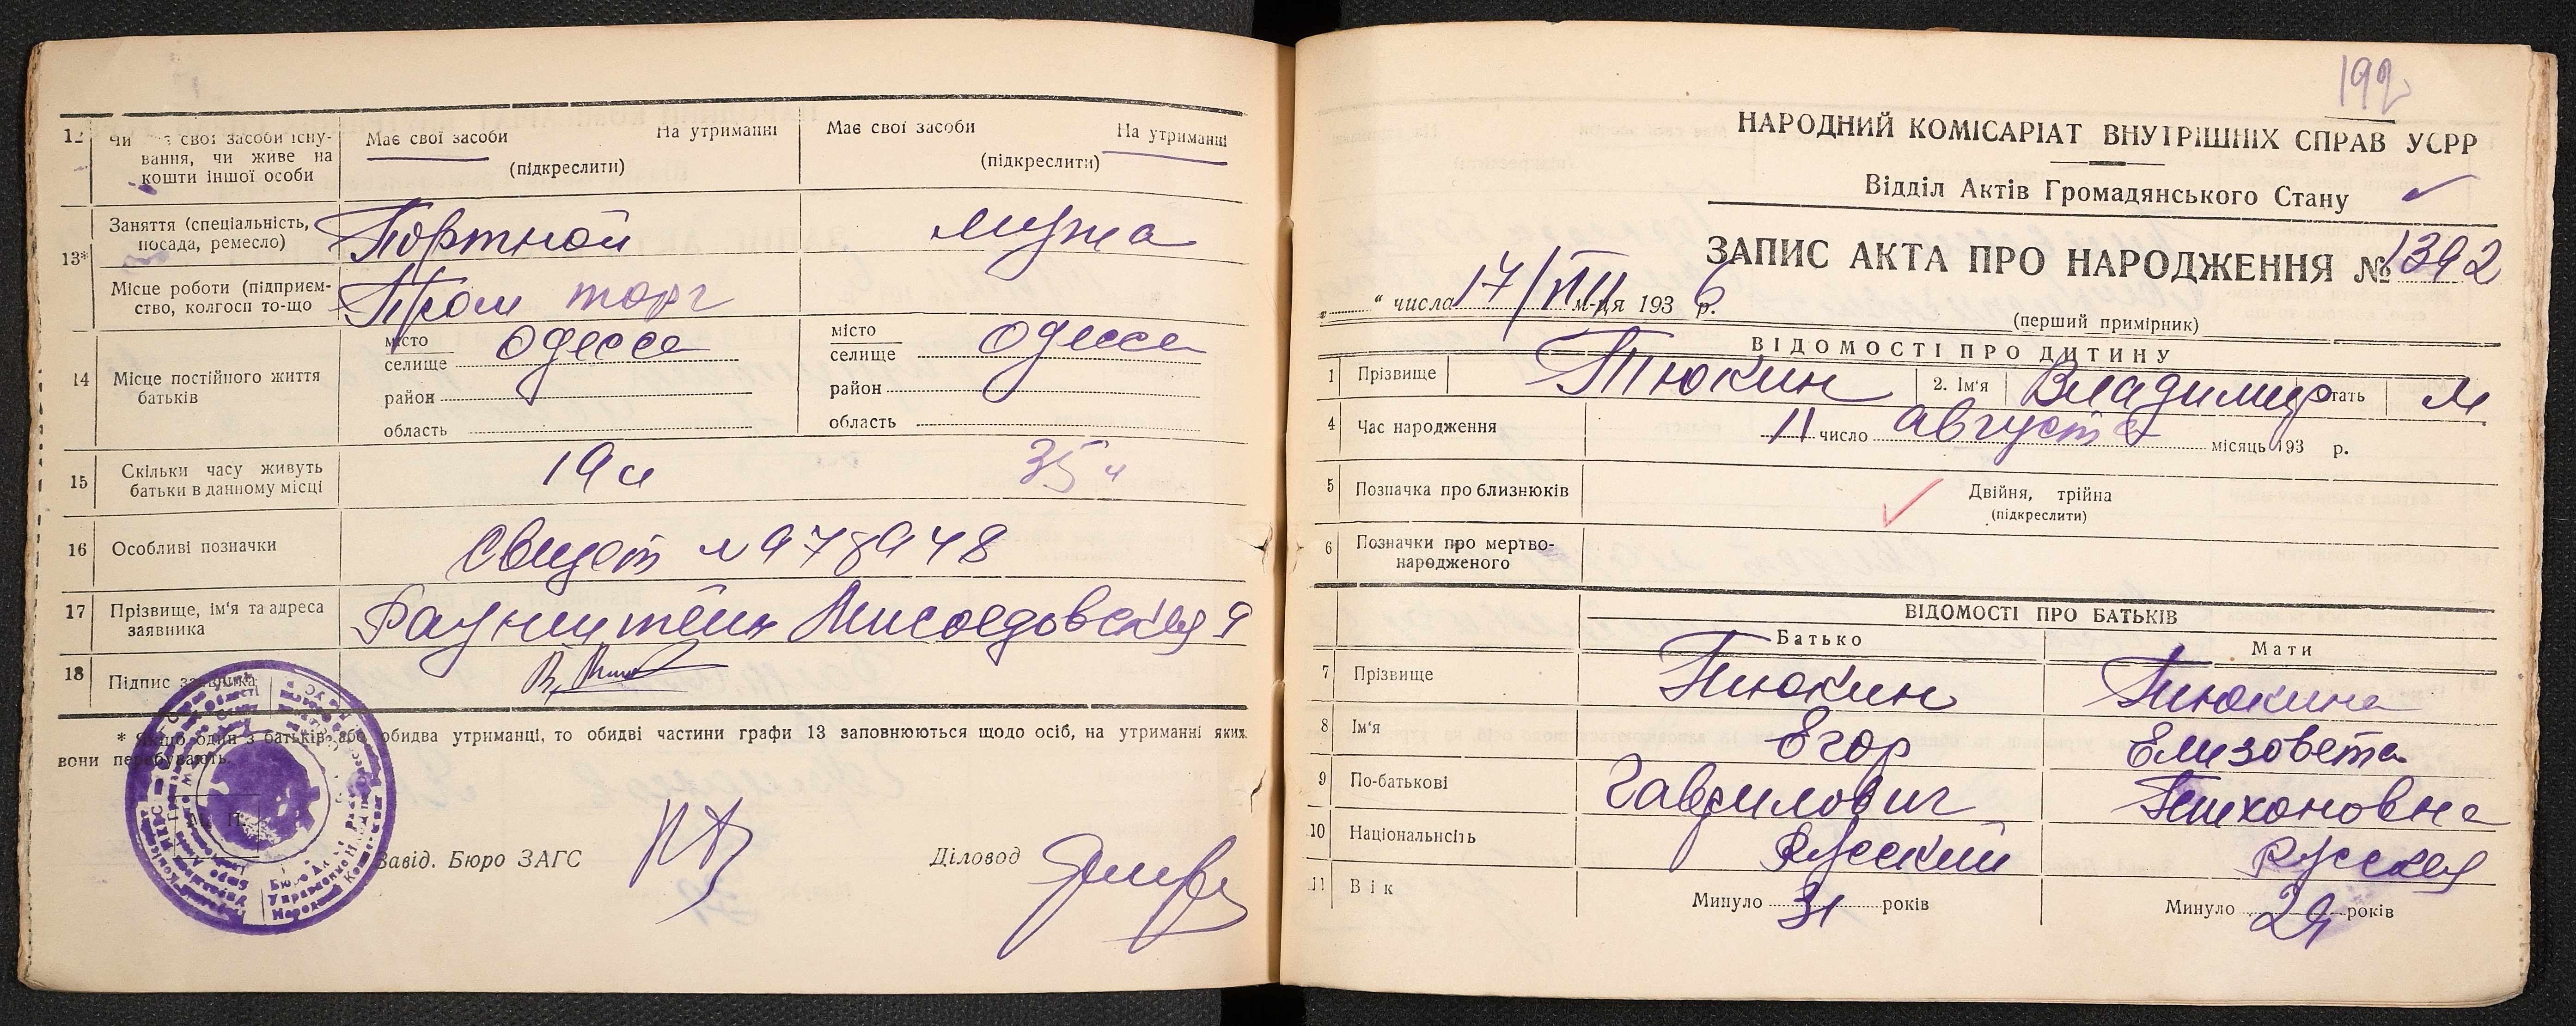 12 Чи має свої засоби існування, чи живе на кошти іншої особи
Має свої засоби На утриманні
(підкреслити)
Має свої засоби На утриманні
(підкреслити)
13* Заняття (спеціальність, посада, ремесло) Портной мужа
Місце роботи (підприємство, колгосп то-що Пром торг
14 Місце постійного життя батьків
місто
селище Одесса
район
область
місто
селище Одесса
район
область
15 Скільки часу живуть батьки в данному місці 19 35
16 Особливі позначки Свидет № 978948
17 Прізвище, ім'я та адреса заявника Мясоедовская 9
18 Підпис заявника
* Якщо один з батьків або обидва утриманці, то обидві частини графи 13 заповнюються щодо осіб, на утриманні яких
вони перебувають.
М. П.
Завід. Бюро ЗАГС
Діловод
192
НАРОДНИЙ КОМІСАРІАТ ВНУТРІШНІХ СПРАВ УСРР
Відділ Актів Громадянського Стану
ЗАПИС АКТА ПРО НАРОДЖЕННЯ № 1392
" числа 17/VIII м-ця 1936 р.
(перший примірник)
ВІДОМОСТІ ПРО ДИТИНУ
1 Прізвище Тюкин 2. Ім'я Владимир тать М
4 Час народження 11 число августа місяць 193 р.
5 Позначка про близнюків Двійня, трійна
(підкреслити)
6 Позначки про мертвонародженого
ВІДОМОСТІ ПРО БАТЬКІВ
Батько Мати
7 Прізвище Тюкин Тюкина
8 Ім'я Егор Елизовета
9 По-батькові Гаврилович Тихоновна
10 Національнсіть Русский Русская
11 Вік Минуло 31 років Минуло 29 років